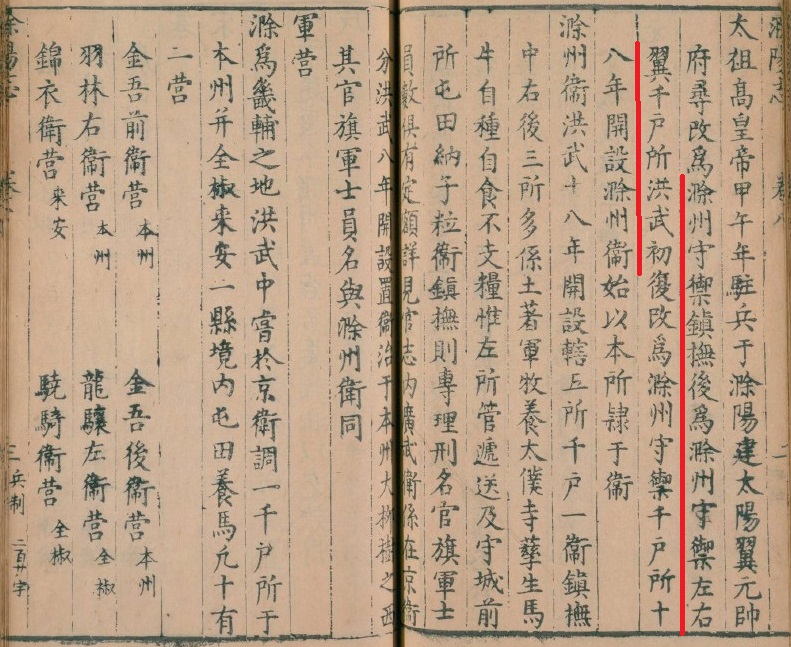 滁陽志 卷八
太祖高皇帝甲午年駐兵于滁陽建太陽翼元帥
府尋改爲滁州守禦鎮撫後爲滁州守禦左右
翼千戶所洪武初復改爲滁州守禦千戶所十
八年開設滁州衞始以本所隸于衞
滁州衞洪武十八年開設轄五所千戶一衞鎮撫
中右後三所多係土著軍牧養太僕寺孳生馬
牛自種自食不支糧惟左所管遞送及守城前
所屯田納子粒衞鎮撫則專理刑名官旗軍士
員數俱有定額詳見官志內廣武衞係在京衞
分洪武八年開設置衞治于本州大柳樹之西
其官旗軍士員名與滁州衞同
軍營
滁爲畿輔之地洪武中嘗於京衞調一千戶所于
本州并全椒來安二縣境內屯田養馬凡十有
二營
金吾前衞營 本州 金吾後衞營 本州
羽林右衞營 本州 龍驤左衞營 全椒
錦衣衞營 來安 驍騎衞營 全椒
滁陽志 卷八 三 兵制 二百廿字